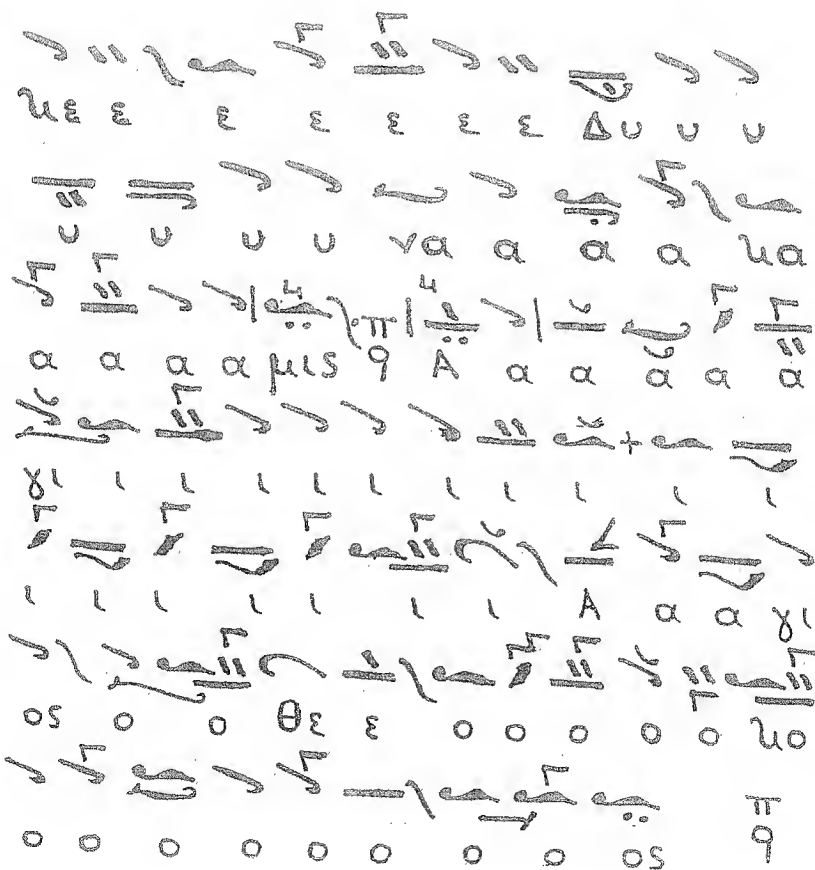 κε ε ε ε ε ε ε Δυ υ υ
υ υ υ υ να α α α κα
α α α α μις π q Α α α α α α
γι ι ι ι ι ι ι ι ι ι ι
ι ι ι ι ι ι ι Α α α γι
ος ο ο θε ε ο ο ο ο ο κο
ο ο ο ο ο ο ο ο ος π q